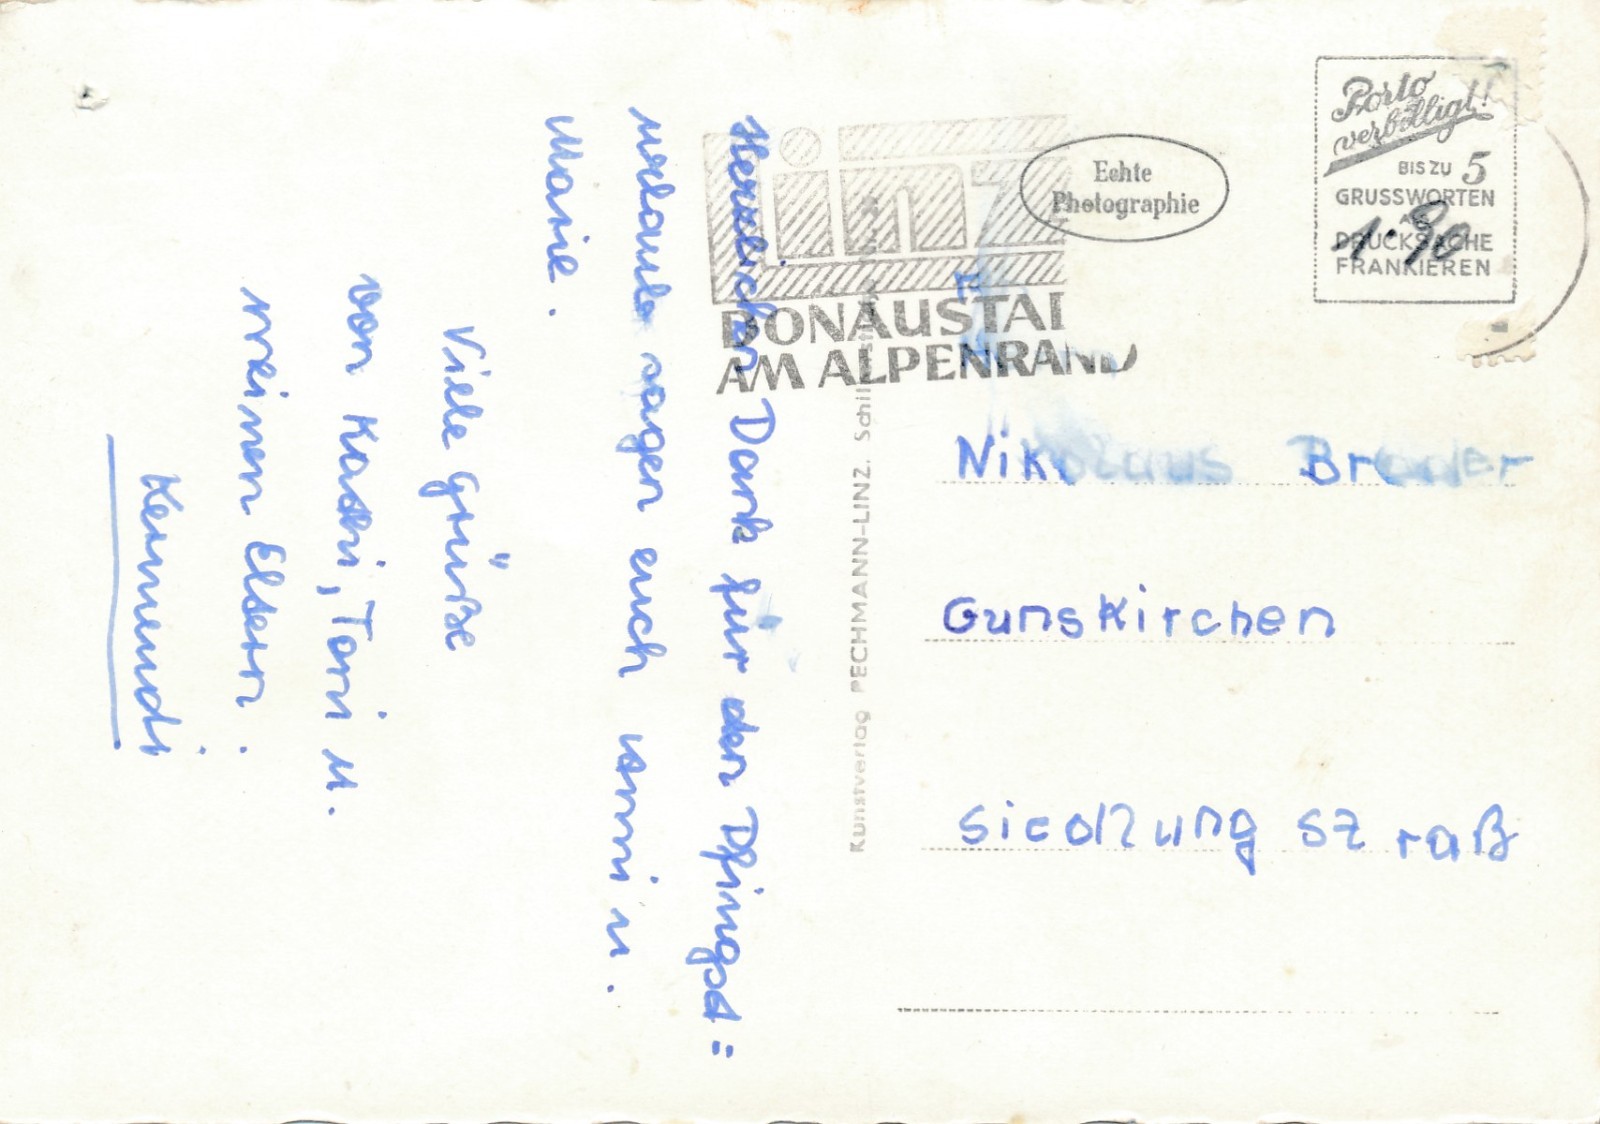 Herzlichen Dank für den Pfingst=
urlaub sagen euch Toni u.
Marie.
Viele Grüße
von Kathi, Toni u.
meinen Eltern.
Linz
DONAUSTAD
AM ALPENRAND
Echte
Photographie
Porto
verbilligt!
BIS ZU 5
GRUSSWORTEN
ALS
DRUCKSACHE
FRANKIEREN
1.90
Kunstverlag PECHMANN-LINZ.
Nikolaus Broder
Gunskirchen